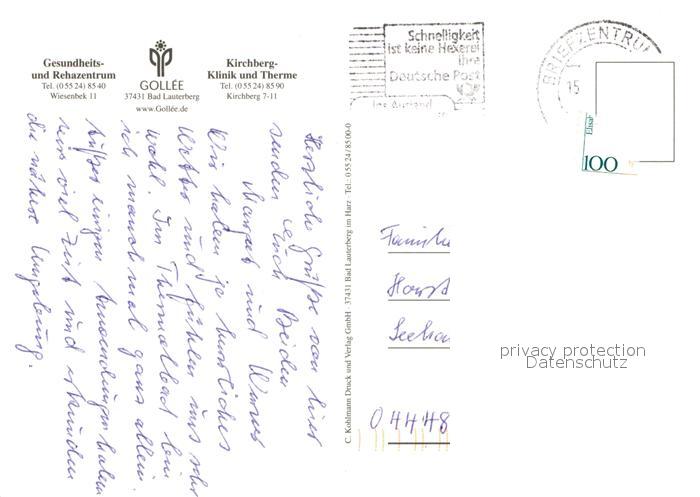 Gesundheits-
und Rehazentrum
Tel. (0 55 24) 85 40
Wiesenbek 11
GOLLÉE
37431 Bad Lauterberg
www.Gollée.de
Kirchberg-
Klinik und Therme
Tel. (0 55 24) 85 90
Kirchberg 7-11
Herzliche Grüße von hier
senden Euch Beiden
Margret und Werner
Wir haben ja herrliches
Wetter und fühlen uns sehr
wohl. Im Thermalbad bin
ich manchmal ganz allein.
Außer einigen Anwendungen haben
wir viel Zeit und erkunden
die nähere Umgebung.
C. Kohlmann Druck und Verlag GmbH · 37431 Bad Lauterberg im Harz · Tel.: 0 55 24 / 85 00-0
Schnelligkeit
ist keine Hexerei
Ihre
Deutsche Post
Ins Ausland
BRIEFZENTRU
15
Elisab
100
Familie
Horst
04448
privacy protection
Datenschutz